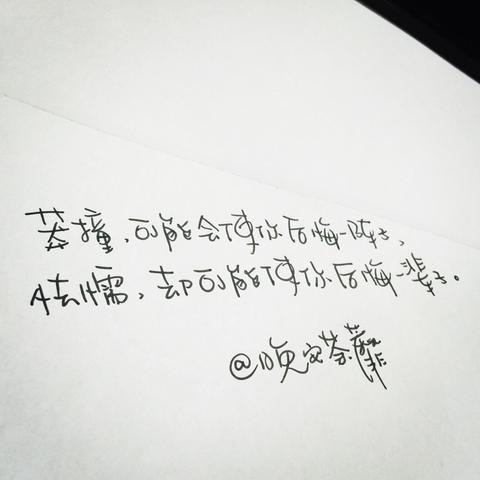 莽撞，可能会使你后悔一阵子，
怯懦，却可能使你后悔一辈子。
@晚安荼蘼